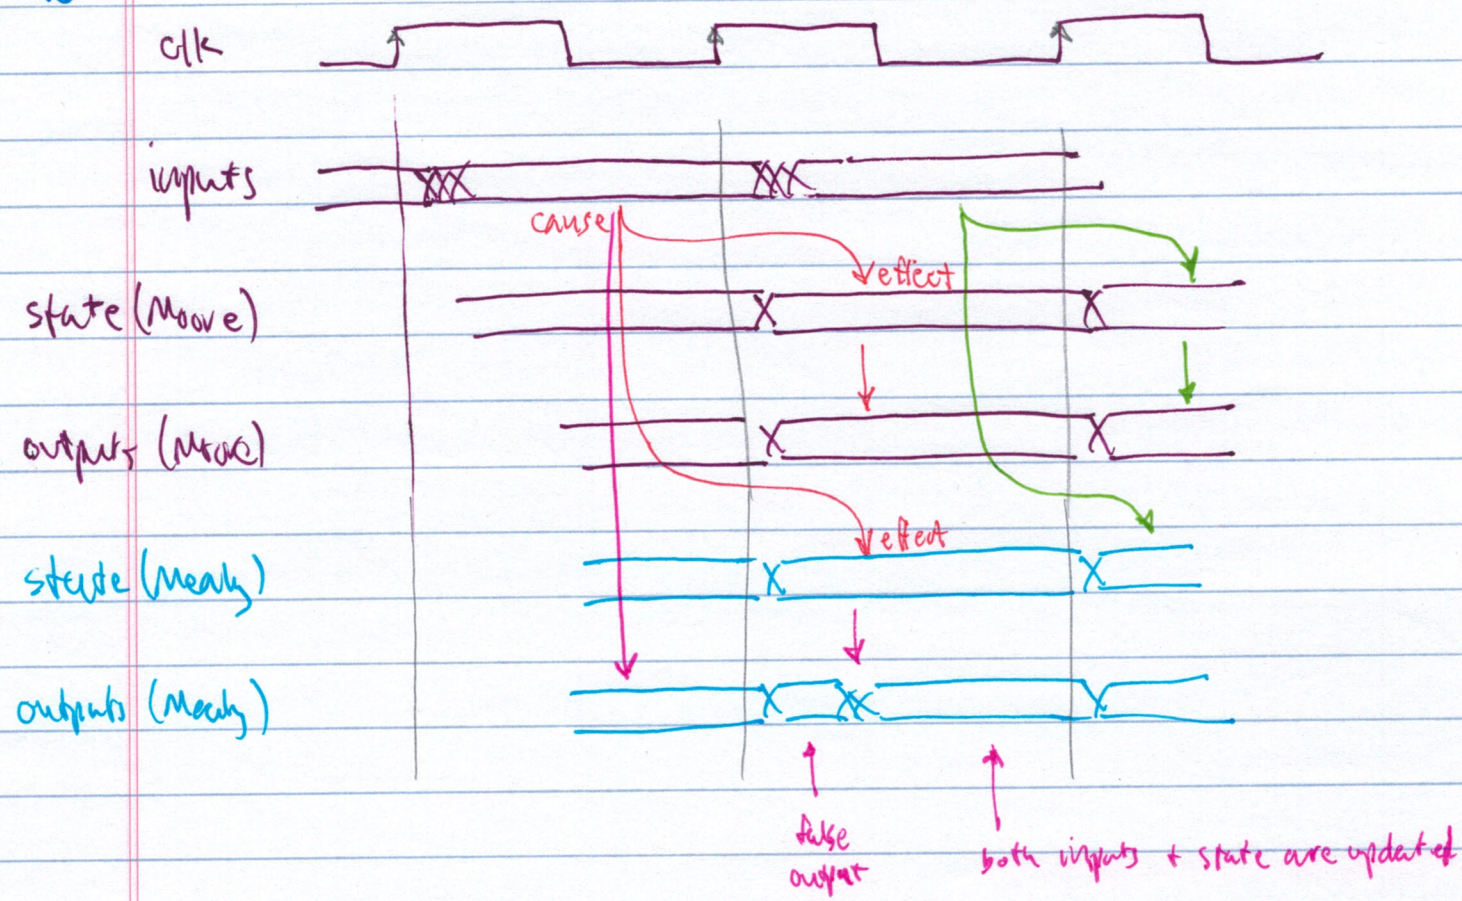 clk
inputs
cause
effect
state (Moore)
outputs (Moore)
effect
state (Mealy)
outputs (Mealy)
false
output
both inputs + state are updated